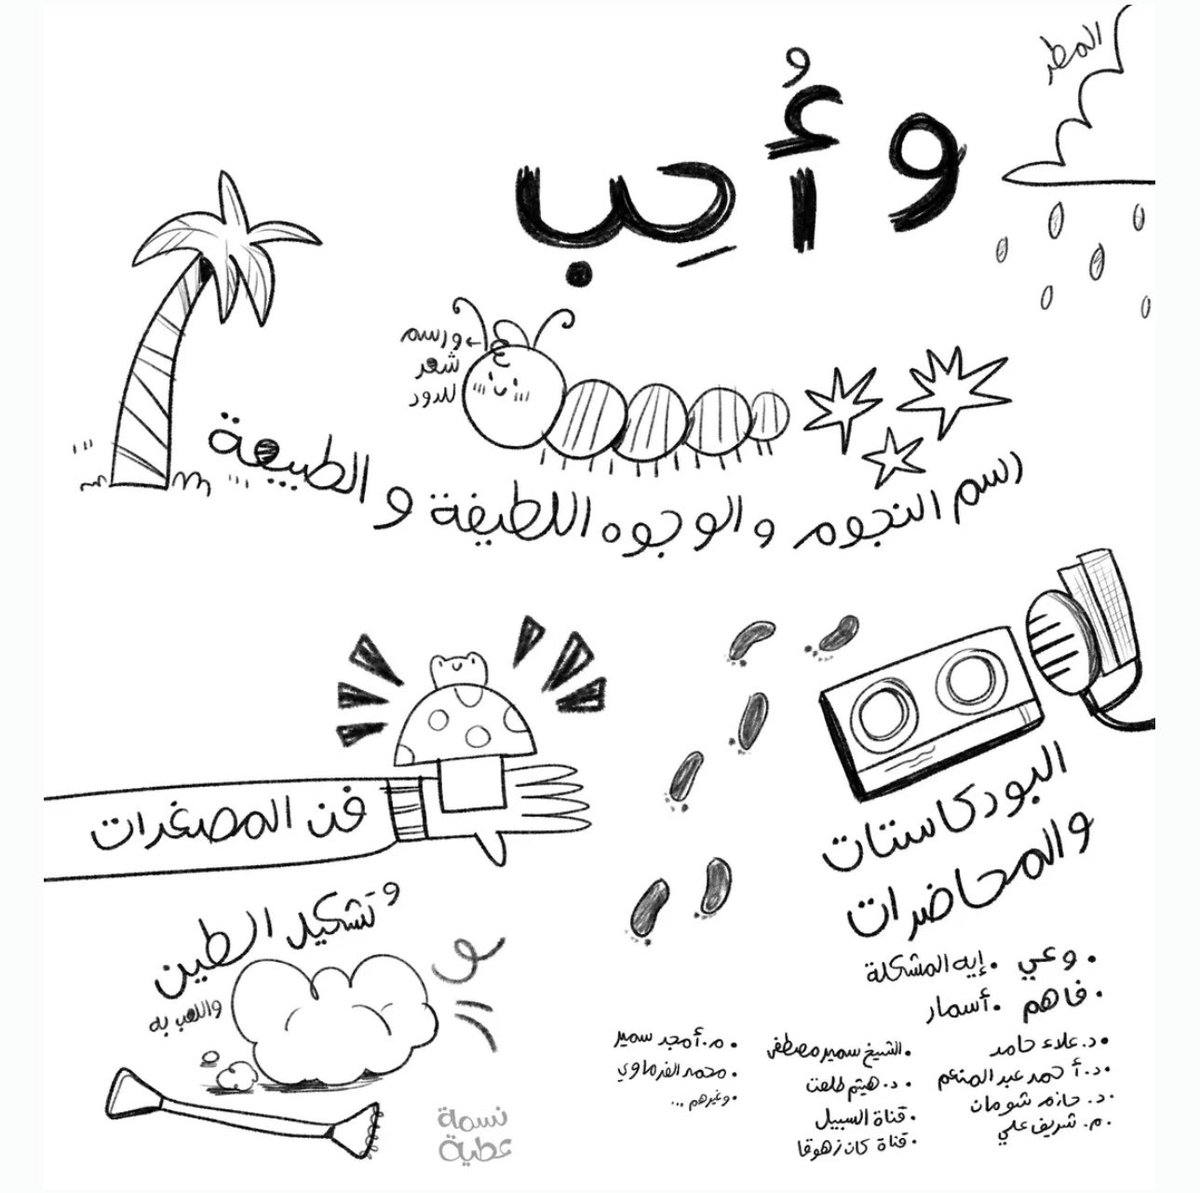 المطر
وأُحِب
و
ورسم
شعر
للدود
رسم النجوم والوجوه اللطيفة والطبيعة
فن المصغرات
وتشكيل الطين
واللعب به
البودكاستات
والمحاضرات
• وعي
• إيه المشكلة
• فاهم
• أسمار
• د. علاء حامد
• د. أحمد عبد المنعم
• د. حازم شومان
• م. شريف علي
• الشيخ سمير مصطفى
• د. هيثم طلعت
• قناة السبيل
• قناة كان زهوقا
• م. أمجد سمير
• محمد الفرماوي
• وغيرهم ...
نسمة
عطية